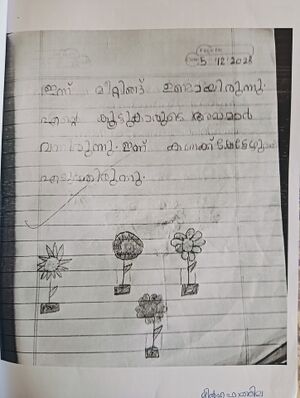 5 12 2023
ഇന്ന് മീറ്റിങ്ങ് ഉണ്ടായിരുന്നു.
എന്റെ കൂട്ടുകാരുടെ അമ്മമാർ
വന്നിരുന്നു. ഇന്ന് കണക്ക്
എഴുതിയിരുന്നു.